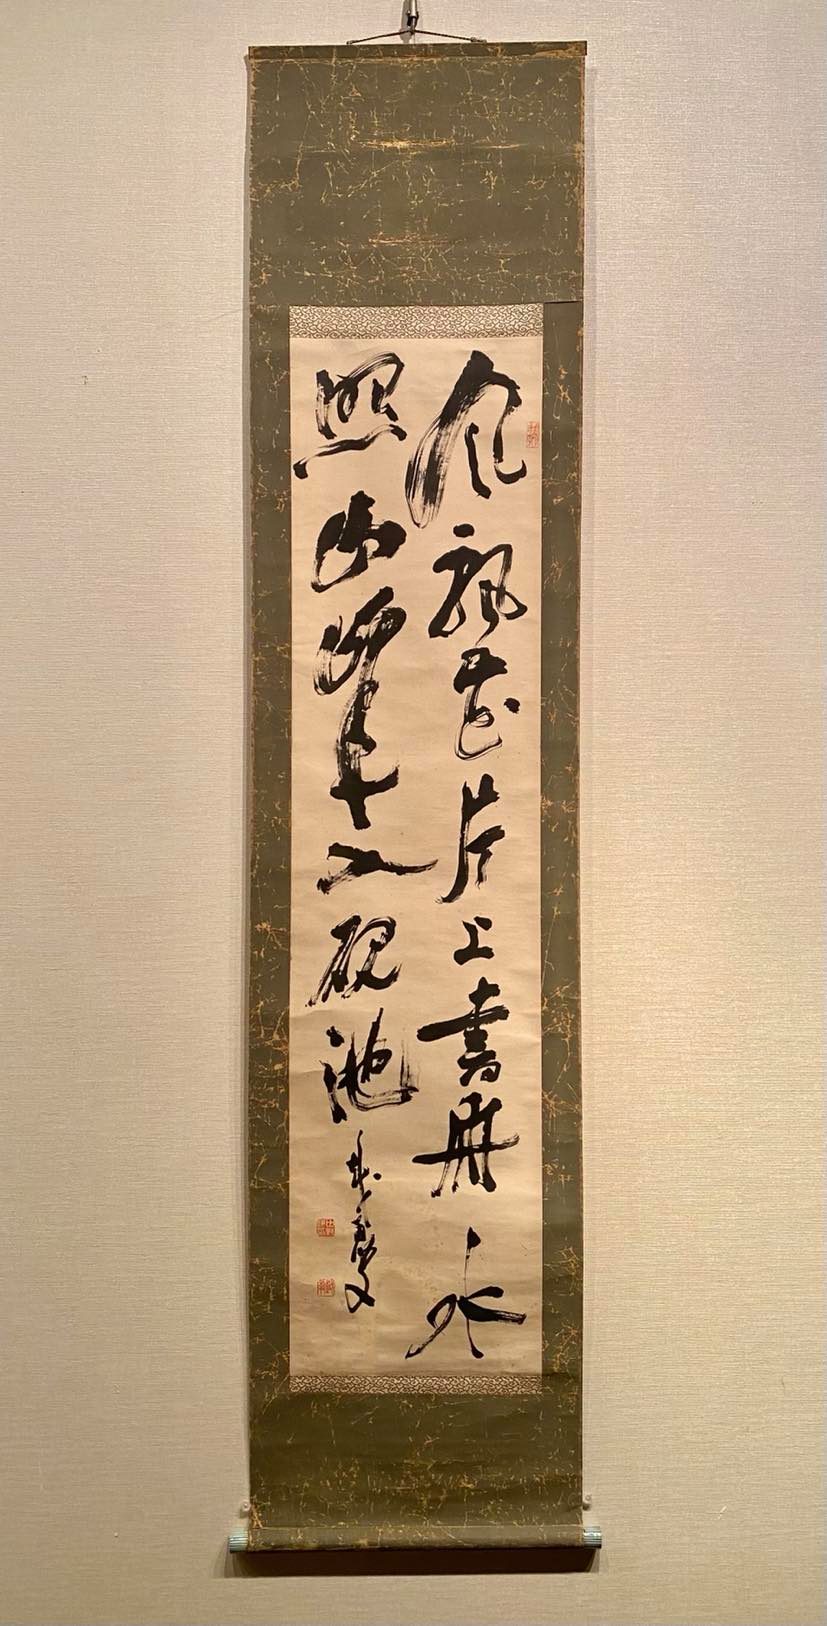 風飄花片上書冊水
照山峰入硯池